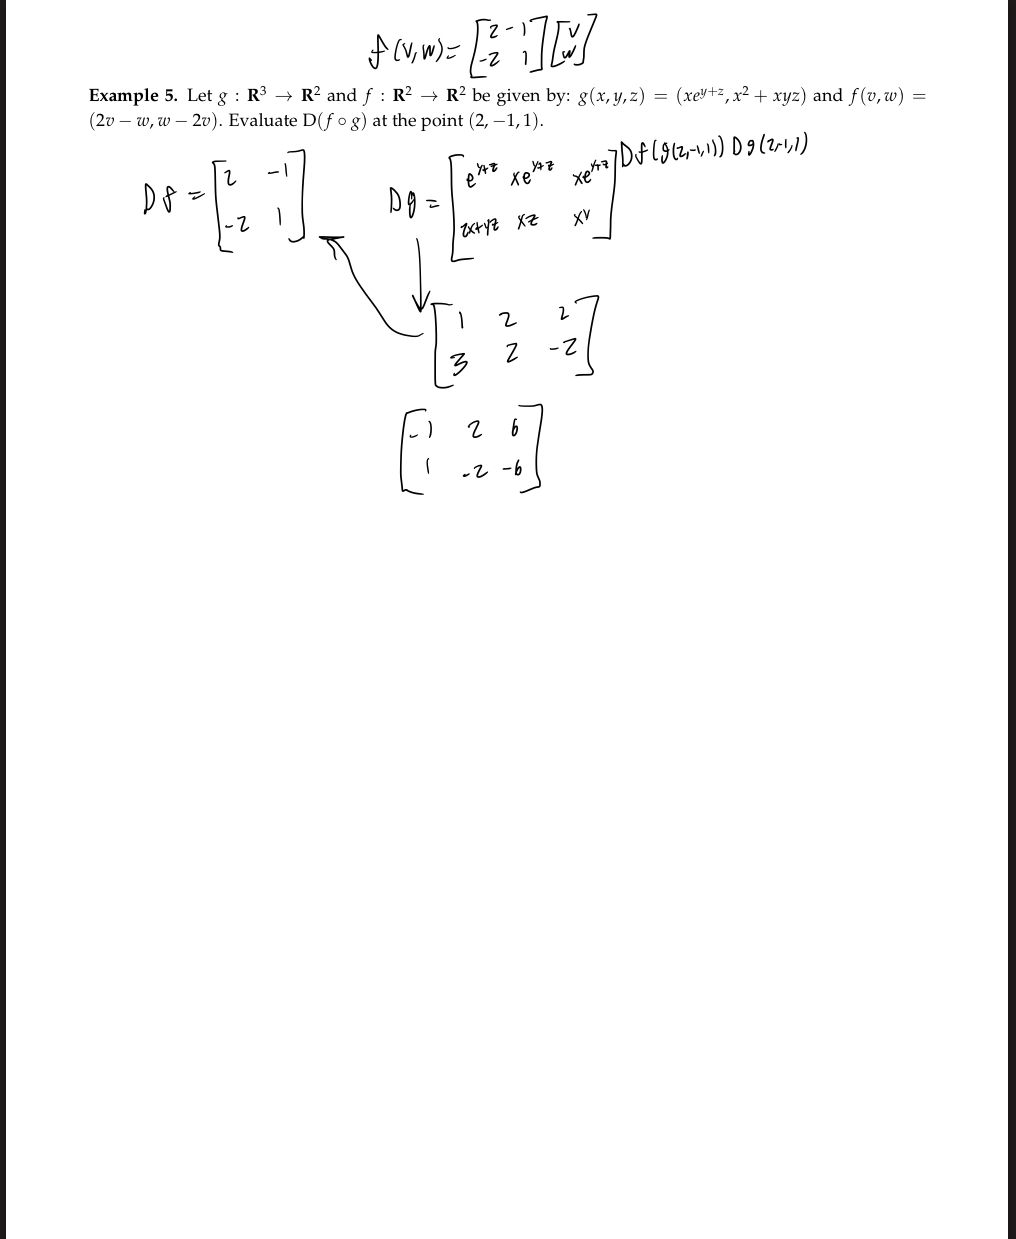 f(v,w)= [2 -1 -2 1] [v w]
Example 5. Let g : R³ → R² and f : R² → R² be given by: g(x, y, z) = (xe^{y+z}, x² + xyz) and f(v, w) =
(2v − w, w − 2v). Evaluate D(f ∘ g) at the point (2, −1, 1).
Df(g(2,-1,1)) Dg(2,-1,1)
Df = [2 -1
-2 1]
Dg = [e^{y+z} xe^{y+z} xe^{y+z}
2x+yz xz xy]
[1 2 2
3 2 -2]
[-1 2 6
1 -2 -6]